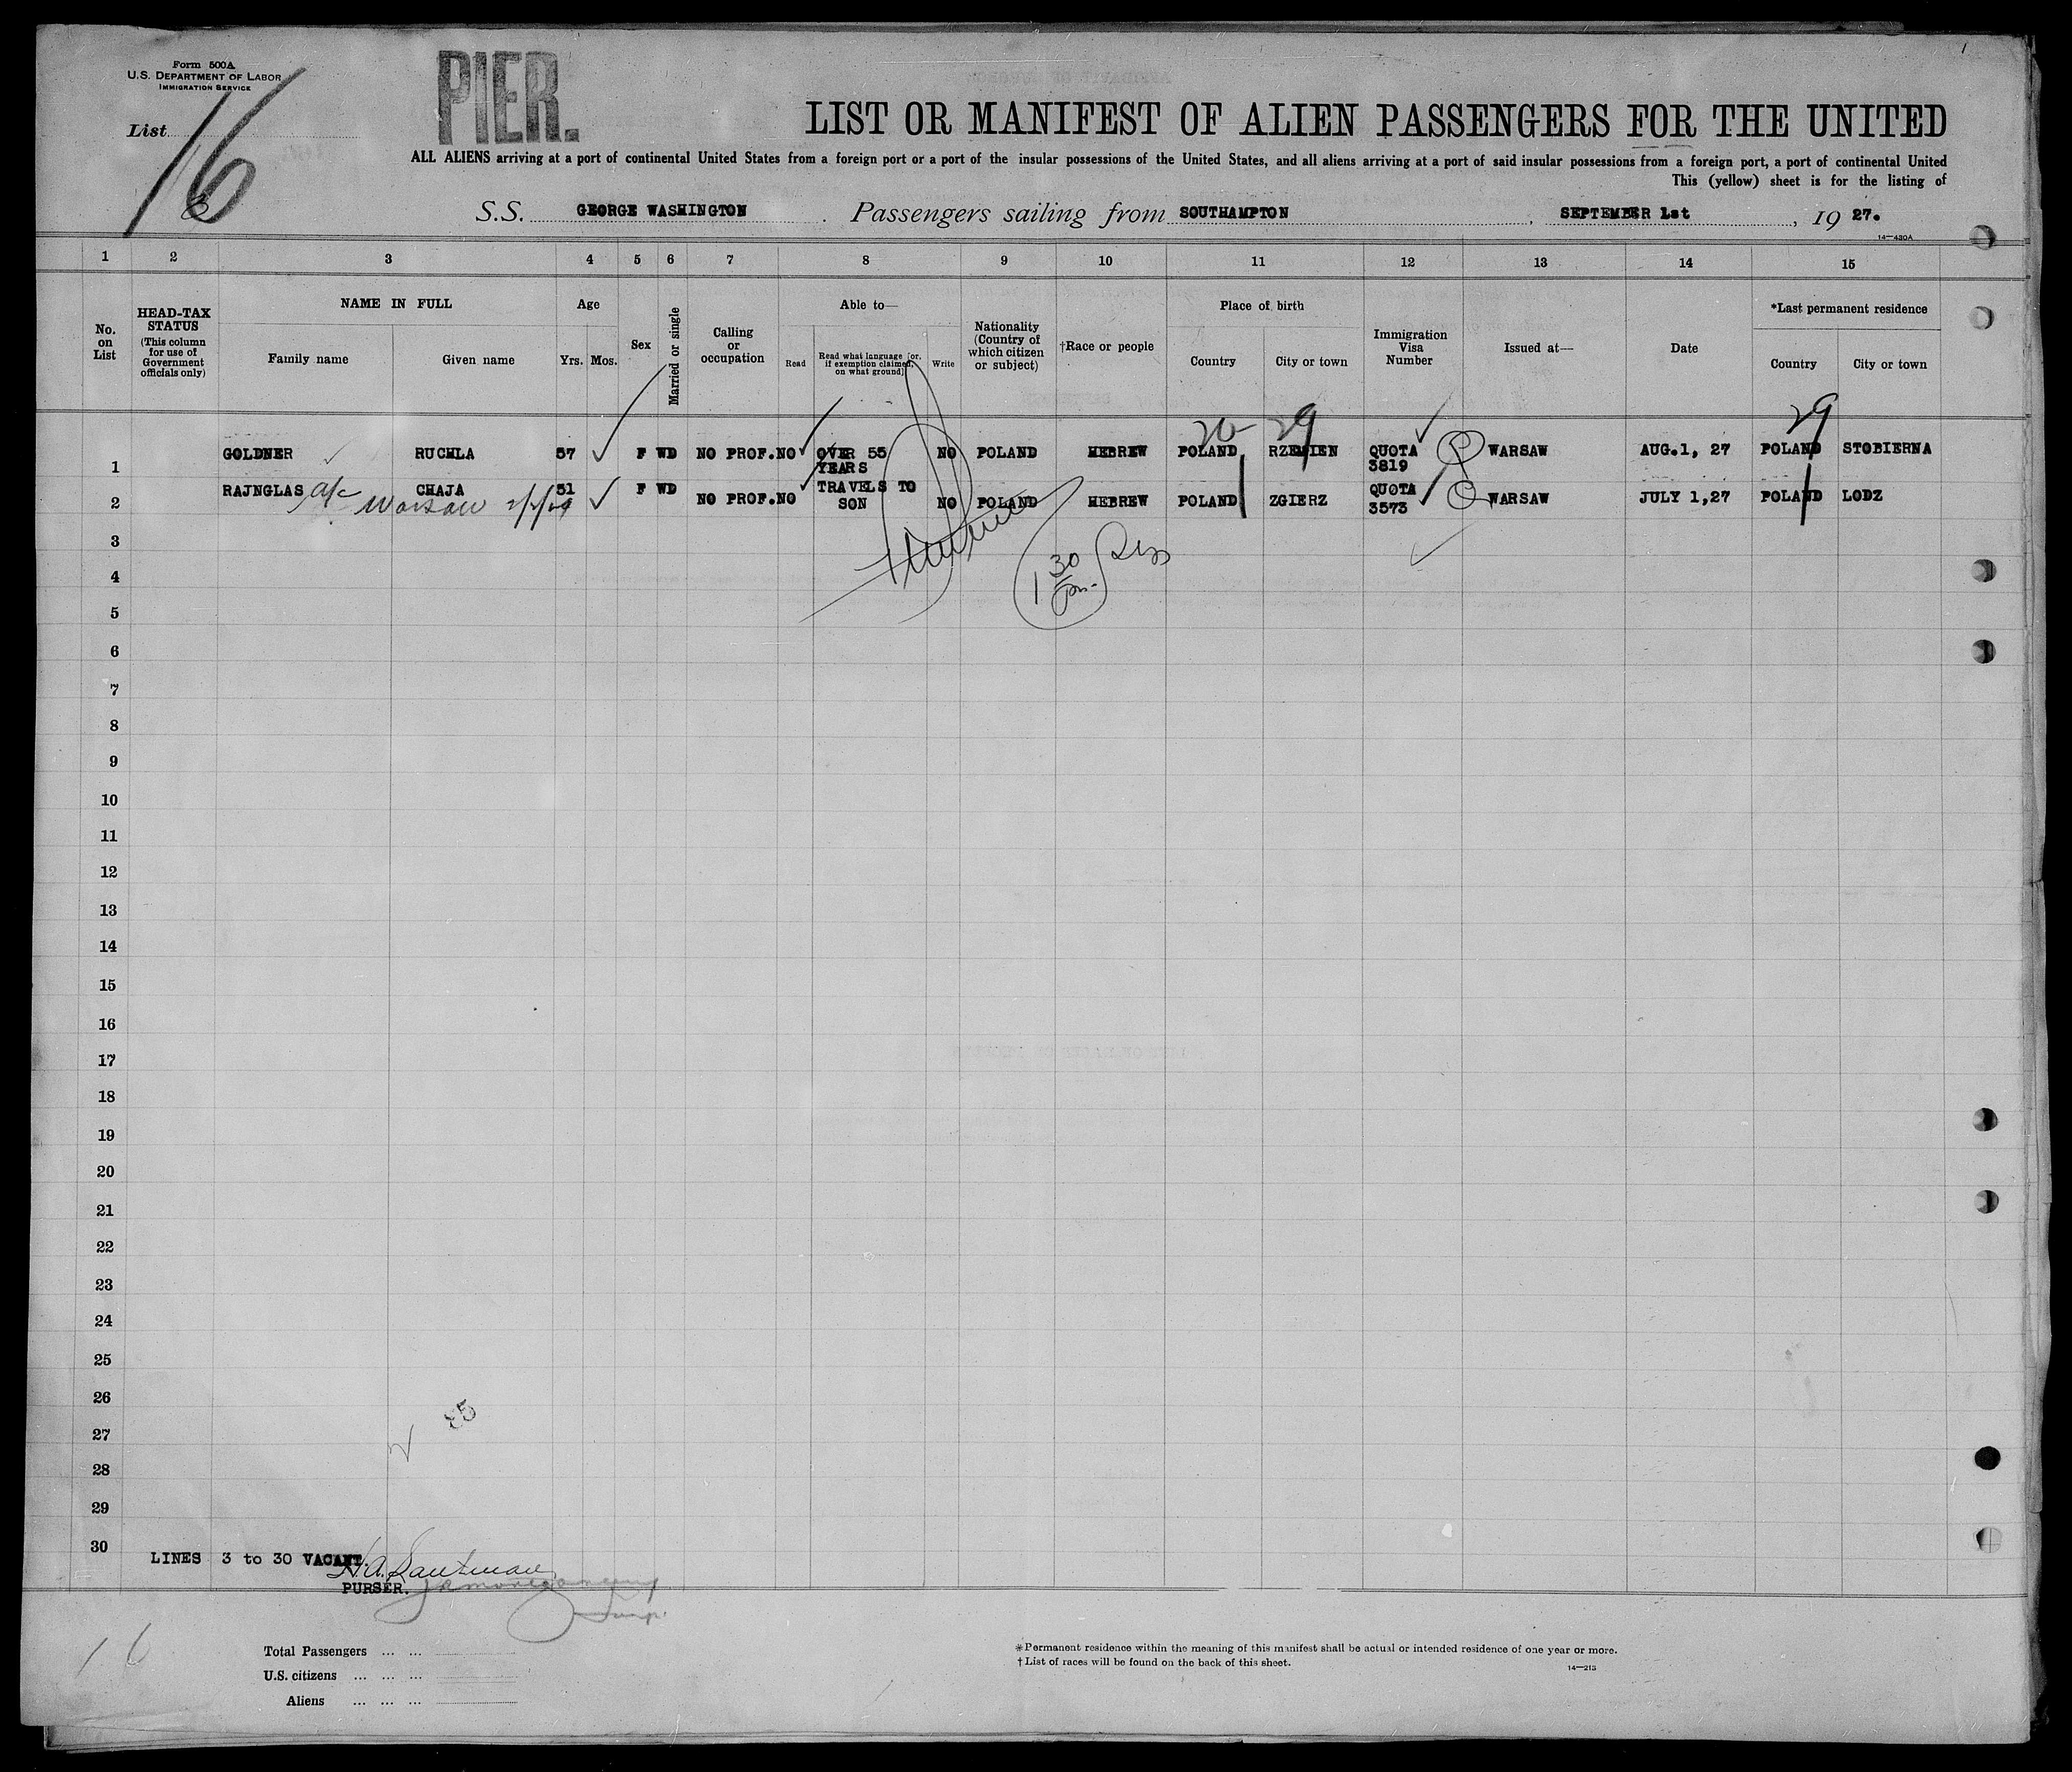 Form 500A
U.S. DEPARTMENT OF LABOR
IMMIGRATION SERVICE
PIER.
List 16
LIST OR MANIFEST OF ALIEN PASSENGERS FOR THE UNITED
ALL ALIENS arriving at a port of continental United States from a foreign port or a port of the insular possessions of the United States, and all aliens arriving at a port of said insular possessions from a foreign port, a port of continental United
This (yellow) sheet is for the listing of
S.S. GEORGE WASHINGTON. Passengers sailing from SOUTHAMPTON, SEPTEMBER 1st, 19 27.
14—430A
1 2 3 4 5 6 7 8 9 10 11 12 13 14 15
No. on List
HEAD-TAX STATUS (This column for use of Government officials only)
NAME IN FULL
Family name
Given name
Age
Yrs. Mos.
Sex
Married or single
Calling or occupation
Able to—
Read
Read what language [or, if exemption claimed, on what ground]
Write
Nationality (Country of which citizen or subject)
†Race or people
Place of birth
Country
City or town
Immigration Visa Number
Issued at—
Date
*Last permanent residence
Country
City or town
20 29 29
1 GOLDNER RUCHLA 57 F WD NO PROF. NO OVER 55 YEARS NO POLAND HEBREW POLAND RZEMIEN QUOTA 3819 WARSAW AUG.1, 27 POLAND STOBIERNA
2 RAJNGLAS CHAJA 51 F WD NO PROF. NO TRAVELS TO SON NO POLAND HEBREW POLAND ZGIERZ QUOTA 3573 WARSAW JULY 1,27 POLAND LODZ
a/c Warsaw
1 30 pm.
3
4
5
6
7
8
9
10
11
12
13
14
15
16
17
18
19
20
21
22
23
24
25
26
27
28
29
30
LINES 3 to 30 VACANT.
PURSER.
16
Total Passengers
U.S. citizens
Aliens
*Permanent residence within the meaning of this manifest shall be actual or intended residence of one year or more.
†List of races will be found on the back of this sheet.
14—213